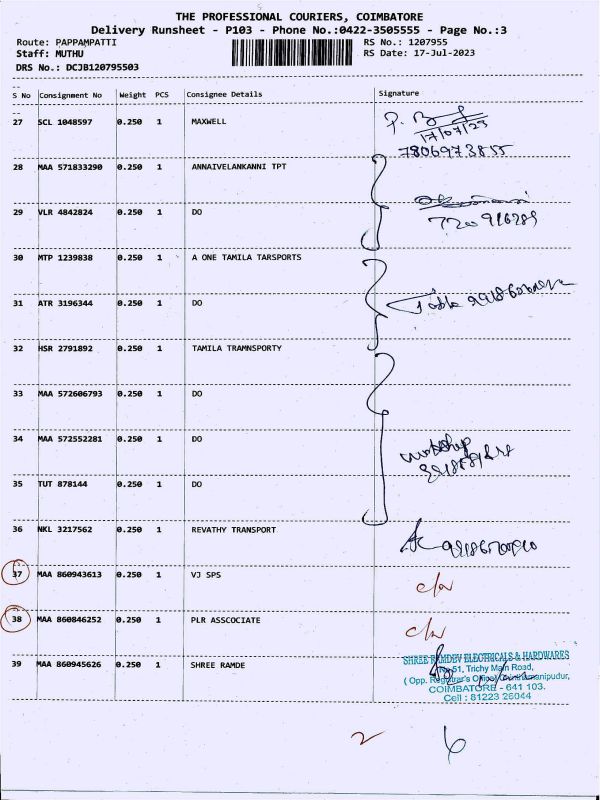 THE PROFESSIONAL COURIERS, COIMBATORE
Delivery Runsheet - P103 - Phone No.:0422-3505555 - Page No.:3
Route: PAPPAMPATTI RS No.: 1207955
Staff: MUTHU RS Date: 17-Jul-2023
DRS No.: DCJB120795503
S No Consignment No Weight PCS Consignee Details Signature
27 SCL 1048597 0.250 1 MAXWELL
17/07/23
7806973855
28 MAA 571833290 0.250 1 ANNAIVELANKANNI TPT
29 VLR 4842824 0.250 1 DO
30 MTP 1239838 0.250 1 A ONE TAMILA TARSPORTS
31 ATR 3196344 0.250 1 DO
32 HSR 2791892 0.250 1 TAMILA TRAMNSPORTY
33 MAA 572606793 0.250 1 DO
34 MAA 572552281 0.250 1 DO
35 TUT 878144 0.250 1 DO
36 NKL 3217562 0.250 1 REVATHY TRANSPORT
37 MAA 860943613 0.250 1 VJ SPS
38 MAA 860846252 0.250 1 PLR ASSCOCIATE
39 MAA 860945626 0.250 1 SHREE RAMDE
SHREE RAMDEV ELECTRICALS & HARDWARES
51, Trichy Main Road,
( Opp. Registrar's Office)
COIMBATORE - 641 103.
Cell : 81223 26044
2 6